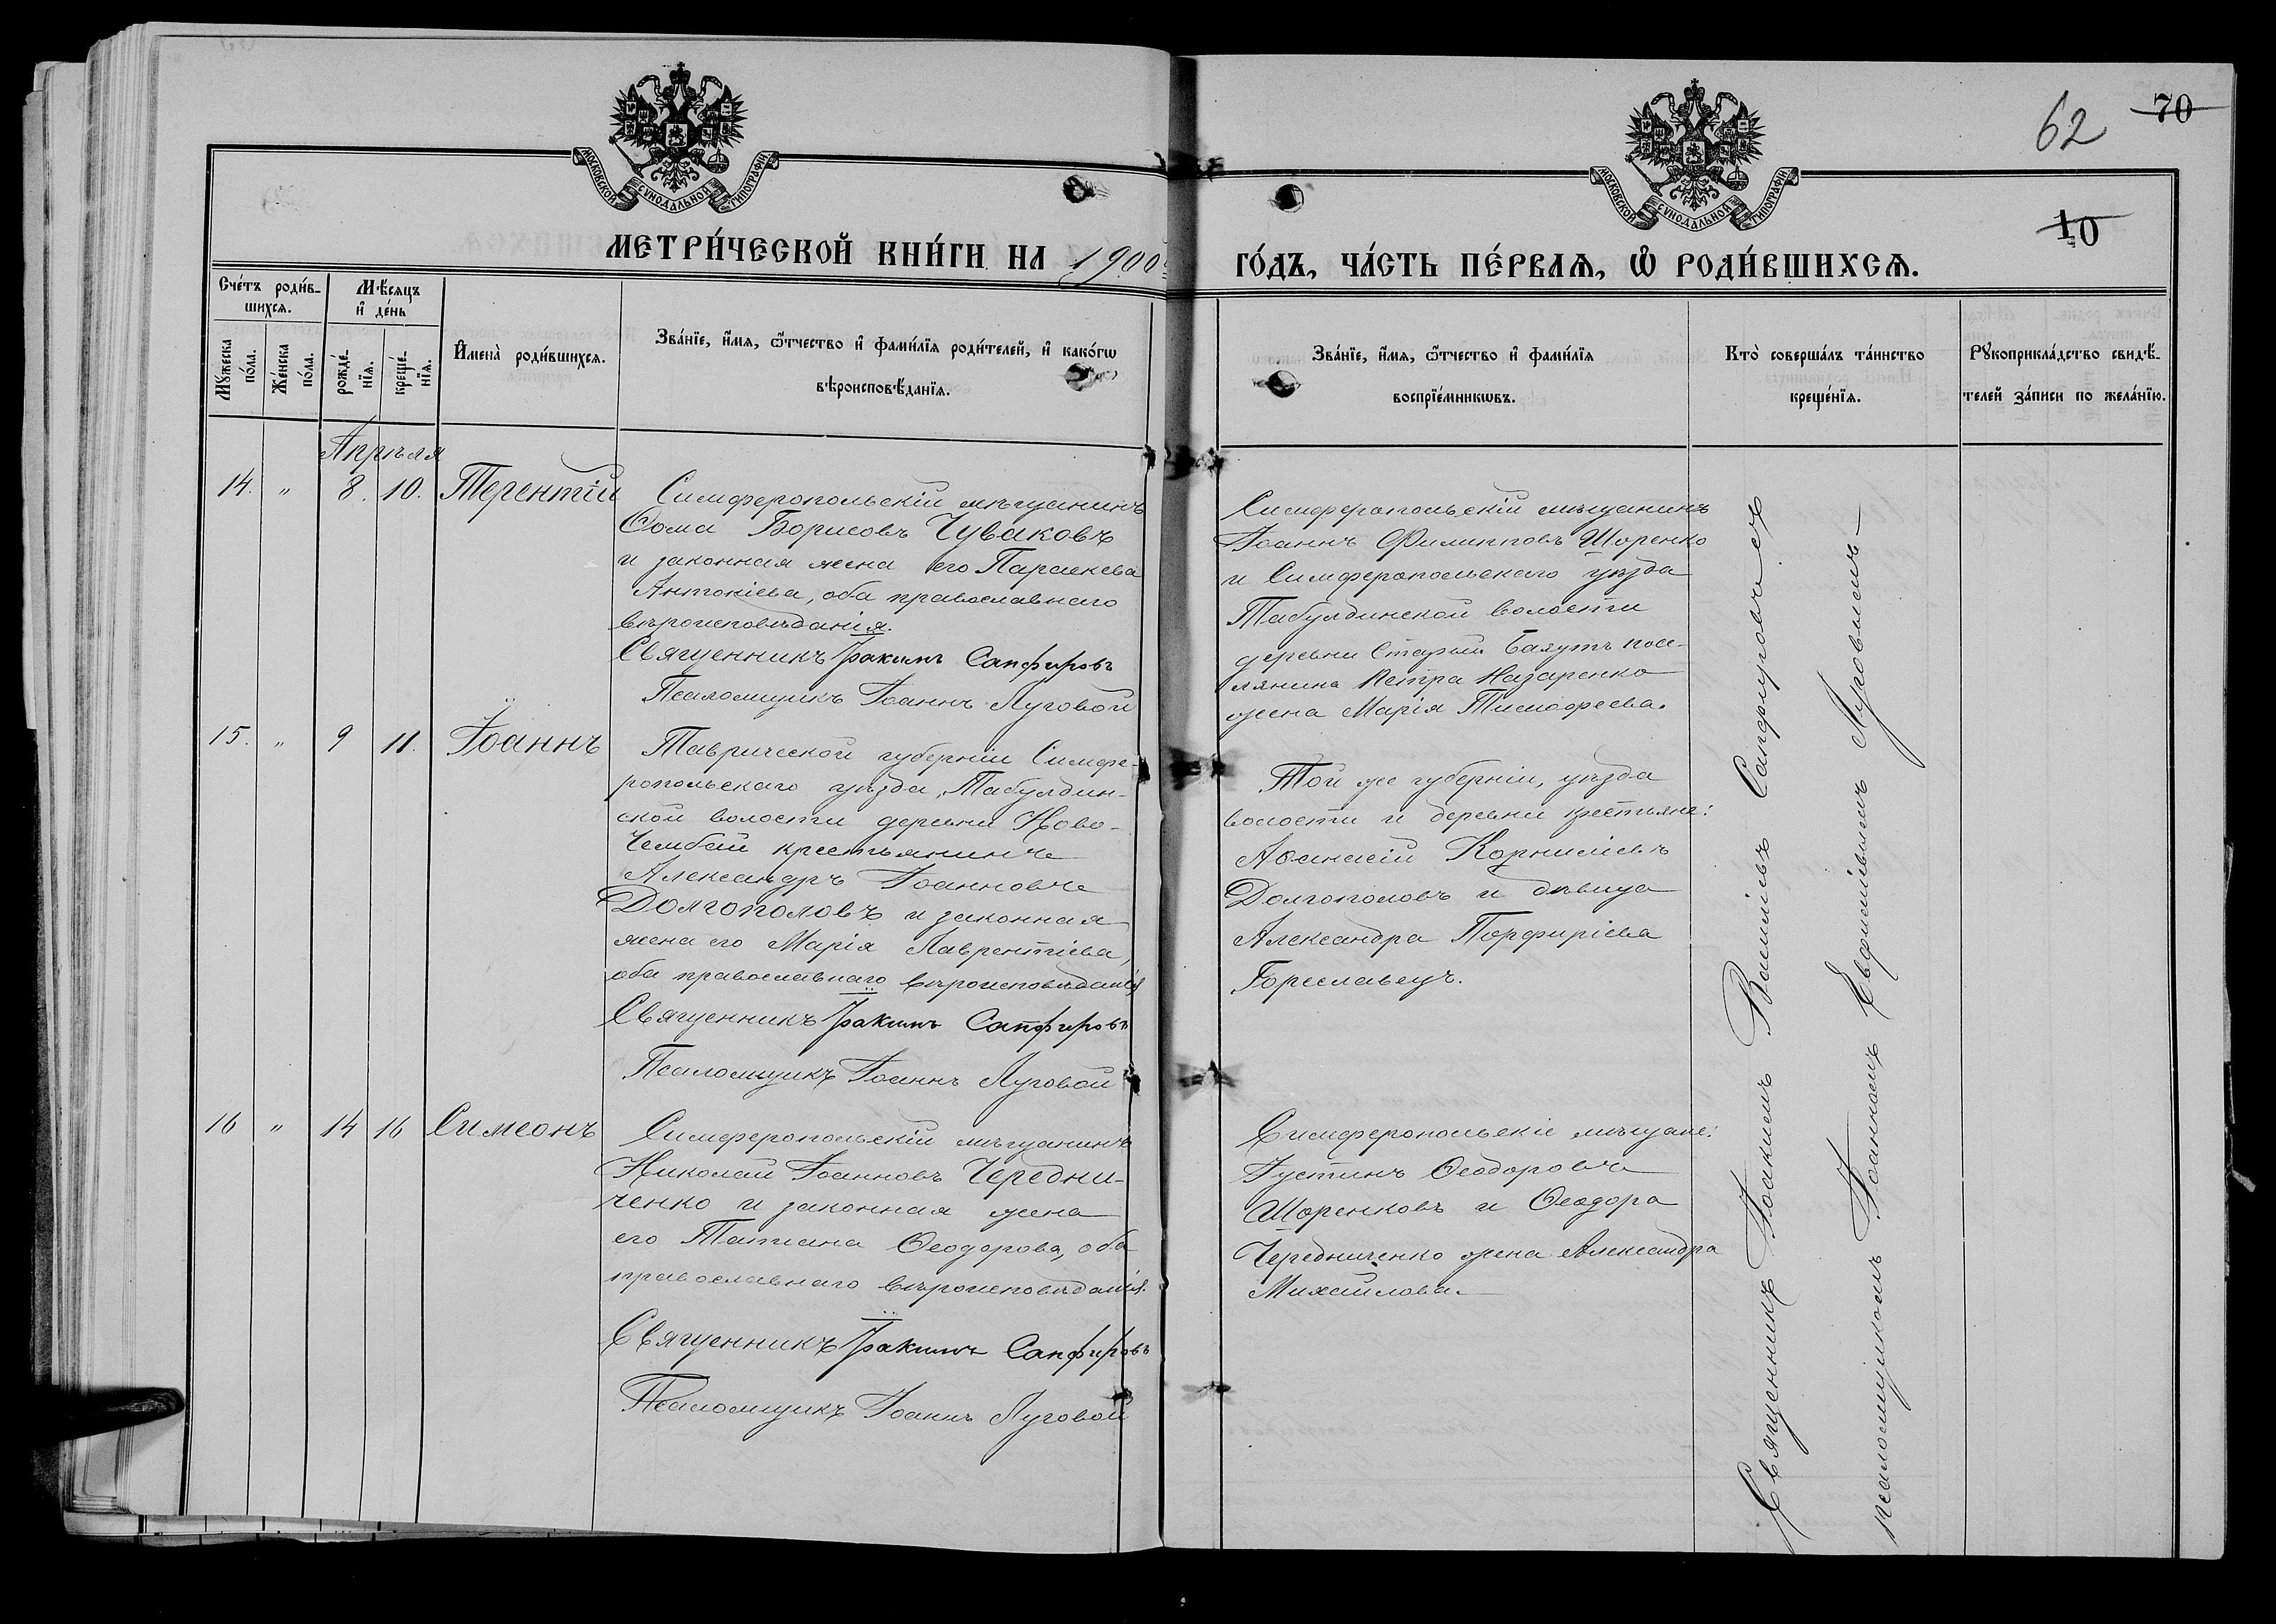 62
70
10
МОСКОВСКОЙ СУНОДАЛЬНОЙ ТИПОГРАФІИ
МОСКОВСКОЙ СУНОДАЛЬНОЙ ТИПОГРАФІИ
МЕТРИ́ЧЕСКОЙ КНИ́ГИ НА 1900й
ГО́ДЪ, ЧА́СТЬ ПЕ́РВАѦ, Ѡ҆ РОДИ́ВШИХСѦ.
Сче́тъ роди́в-
шихсѧ.
Мꙋ́жеска
по́ла.
Же́нска
по́ла.
Мѣ́сѧцъ
и҆ де́нь
рожде́-
нїѧ.
креще́-
нїѧ.
И҆мена̀ роди́вшихсѧ.
Зва́нїе, и҆́мѧ, ѻ҆́тчество и҆ фами́лїѧ роди́телей, и҆ како́гѡ
вѣроисповѣ́данїѧ.
Зва́нїе, и҆́мѧ, ѻ҆́тчество и҆ фами́лїѧ
воспрїе́мникѡвъ.
Кто̀ соверша́лъ та́инство
креще́нїѧ.
Рꙋкоприкла́дство свидѣ́-
телей за́писи по жела́нїю.
Апрѣля
14. " 8. 10. Терентій
Симферопольскій мѣщанинъ
Ѳома Борисовъ Чуваковъ
и законная жена его Параскева
Антоніева, оба православнаго
вѣроисповѣданія.
Священникъ Іоакимъ Сапфировъ
Псаломщикъ Іоаннъ Луговой
Симферопольскій мѣщанинъ
Іоаннъ Филипповъ Шоренко
и Симферопольскаго уѣзда
Табулдинской волости
деревни Старый Баяутъ посе-
лянина Петра Назаренко
жена Марія Тимофеева.
15. " 9 11. Іоаннъ
Таврической губерніи Симфе-
ропольскаго уѣзда, Табулдин-
ской волости деревни Ново-
Чембай крестьянинъ
Александръ Іоанновъ
Долгополовъ и законная
жена его Марія Лаврентіева,
оба православнаго вѣроисповѣданія
Священникъ Іоакимъ Сапфировъ
Псаломщикъ Іоаннъ Луговой
Той же губерніи, уѣзда
волости и деревни крестьяне:
Аѳанасій Корниліевъ
Долгополовъ и дѣвица
Александра Порфиріева
Гореславецъ.
16 " 14 16 Симеонъ
Симферопольскій мѣщанинъ
Николай Іоанновъ Чередни-
ченко и законная жена
его Татіана Ѳеодорова, оба
православнаго вѣроисповѣданія.
Священникъ Іоакимъ Сапфировъ
Псаломщикъ Іоаннъ Луговой
Симферопольскіе мѣщане:
Іустинъ Ѳеодоровъ
Шоренковъ и Ѳеодора
Чередниченко жена Александра
Михайлова.
Священникъ Іоакимъ Василіевъ Сапфировъ съ
псаломщикомъ Іоанномъ Евфиміевымъ Луговымъ